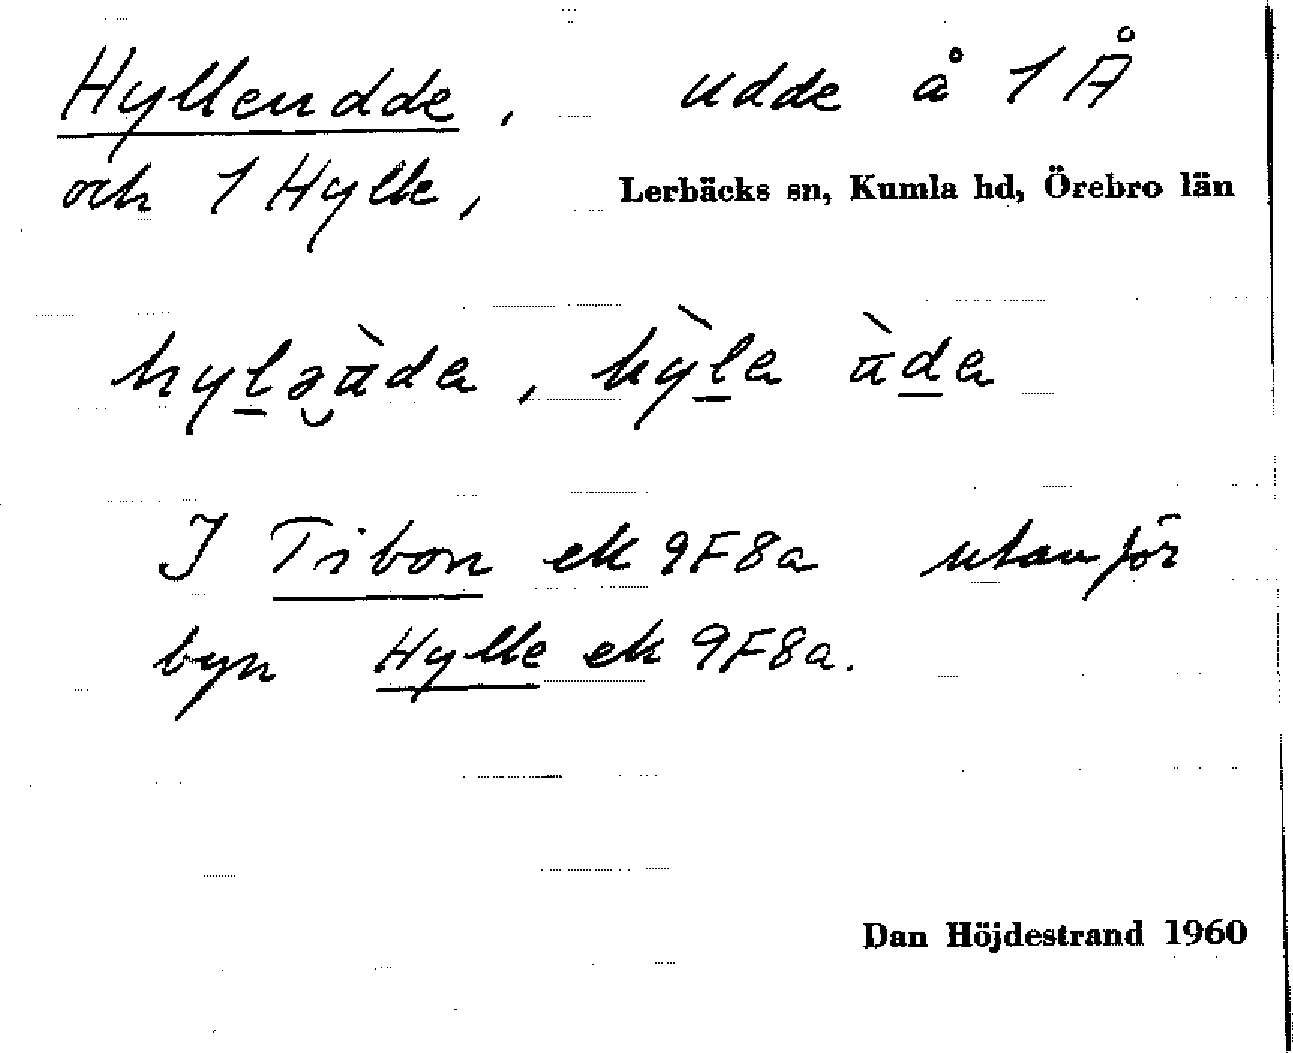 Hyllendde, udde å 1 Å
och 1 Hylle, Lerbäcks sn, Kumla hd, Örebro län
hyləàda, hỳla àda
I Tibon ek 9F8a utanför
byn Hylle ek 9F8a.
Dan Höjdestrand 1960